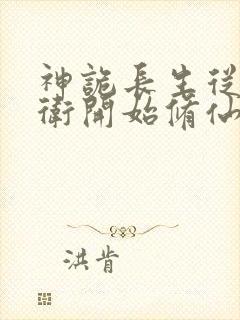 神詭長生從
衛開始脩仙
洪肯